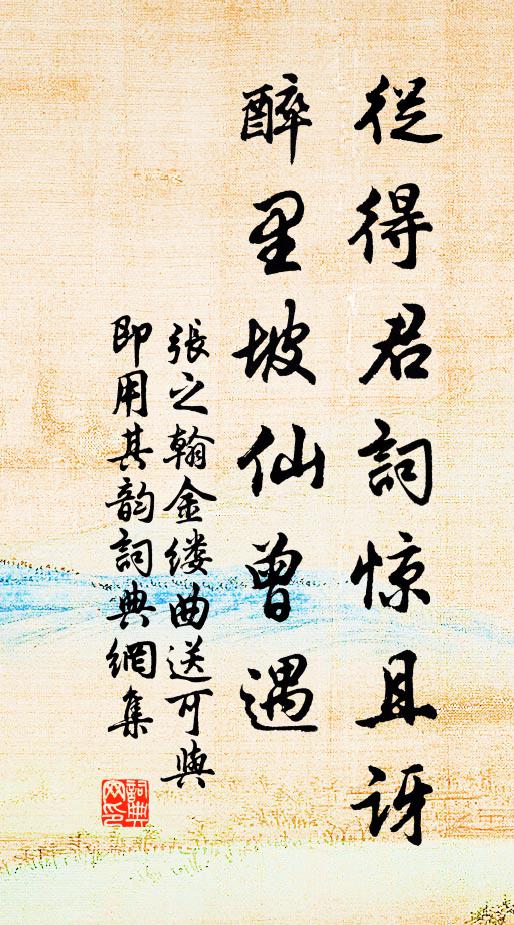 從得君詞惊且訝
醉里坡仙曾遇
張之翰金缕曲送可與
即用其韵詞典網集
詞典
网印